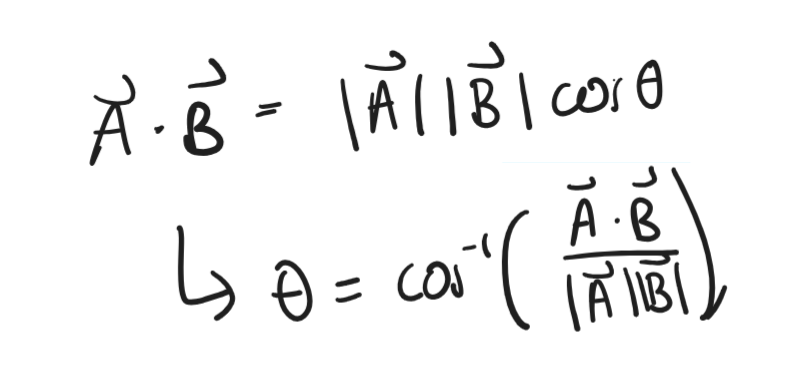 $\vec{A} \cdot \vec{B} = |\vec{A}||\vec{B}| \cos\theta$
$\hookrightarrow \theta = \cos^{-1}\left(\frac{\vec{A} \cdot \vec{B}}{|\vec{A}||\vec{B}|}\right)$